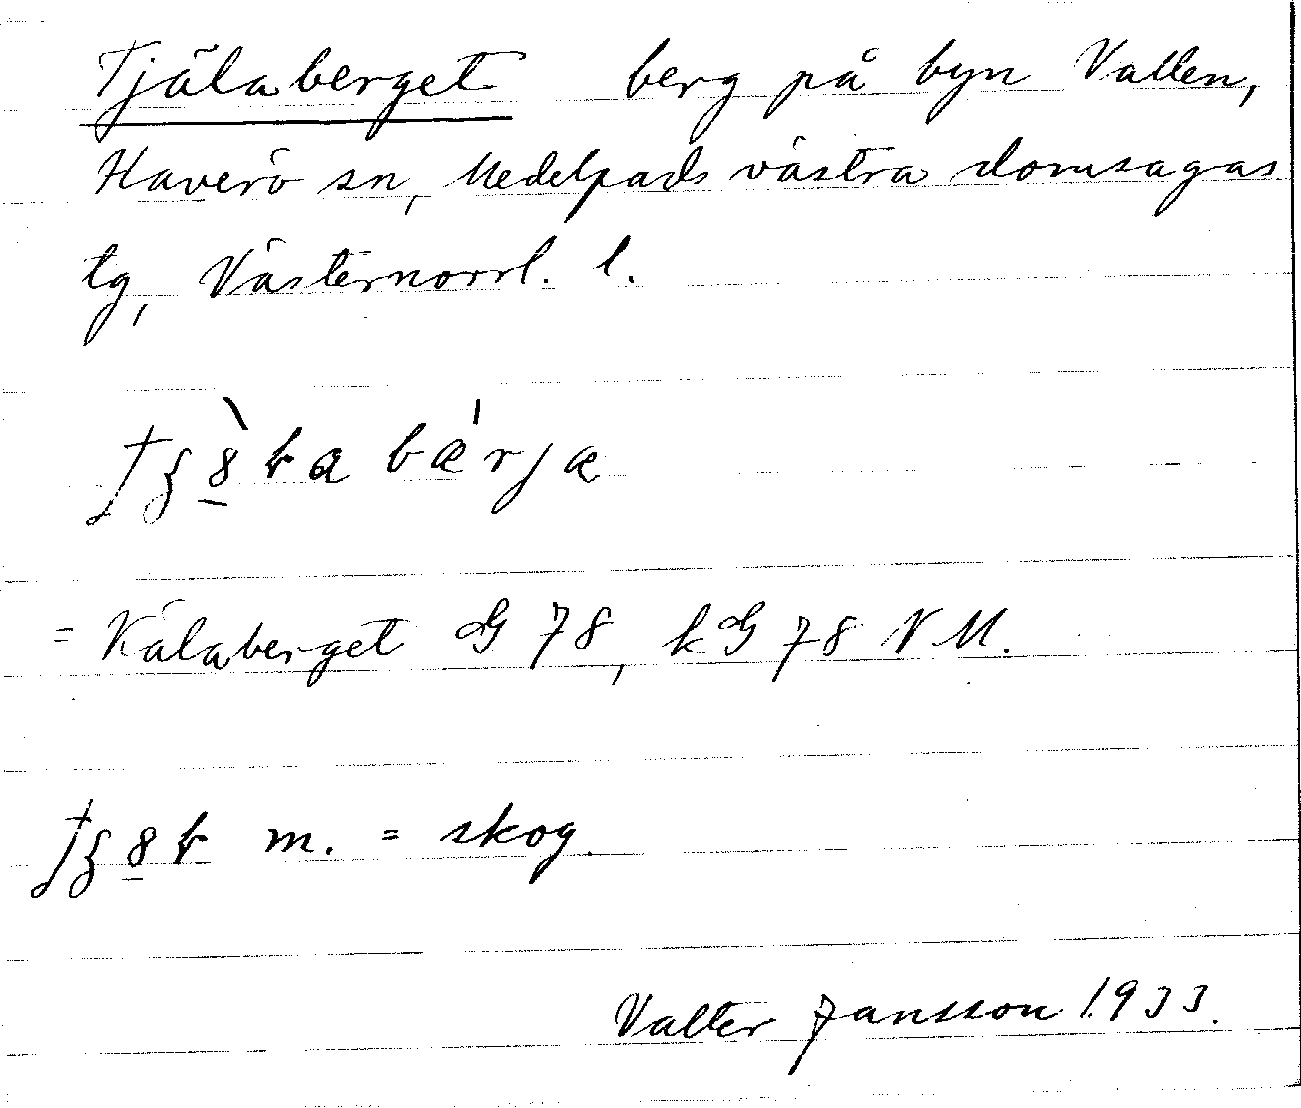 Tjälaberget berg på byn Vallen,
Haverö sn, Medelpads västra domsagas
tg, Västernorrl. l.
= Kälaberget G 78, kG 78 NM.
m. = skog.
Valter Jansson 1933.